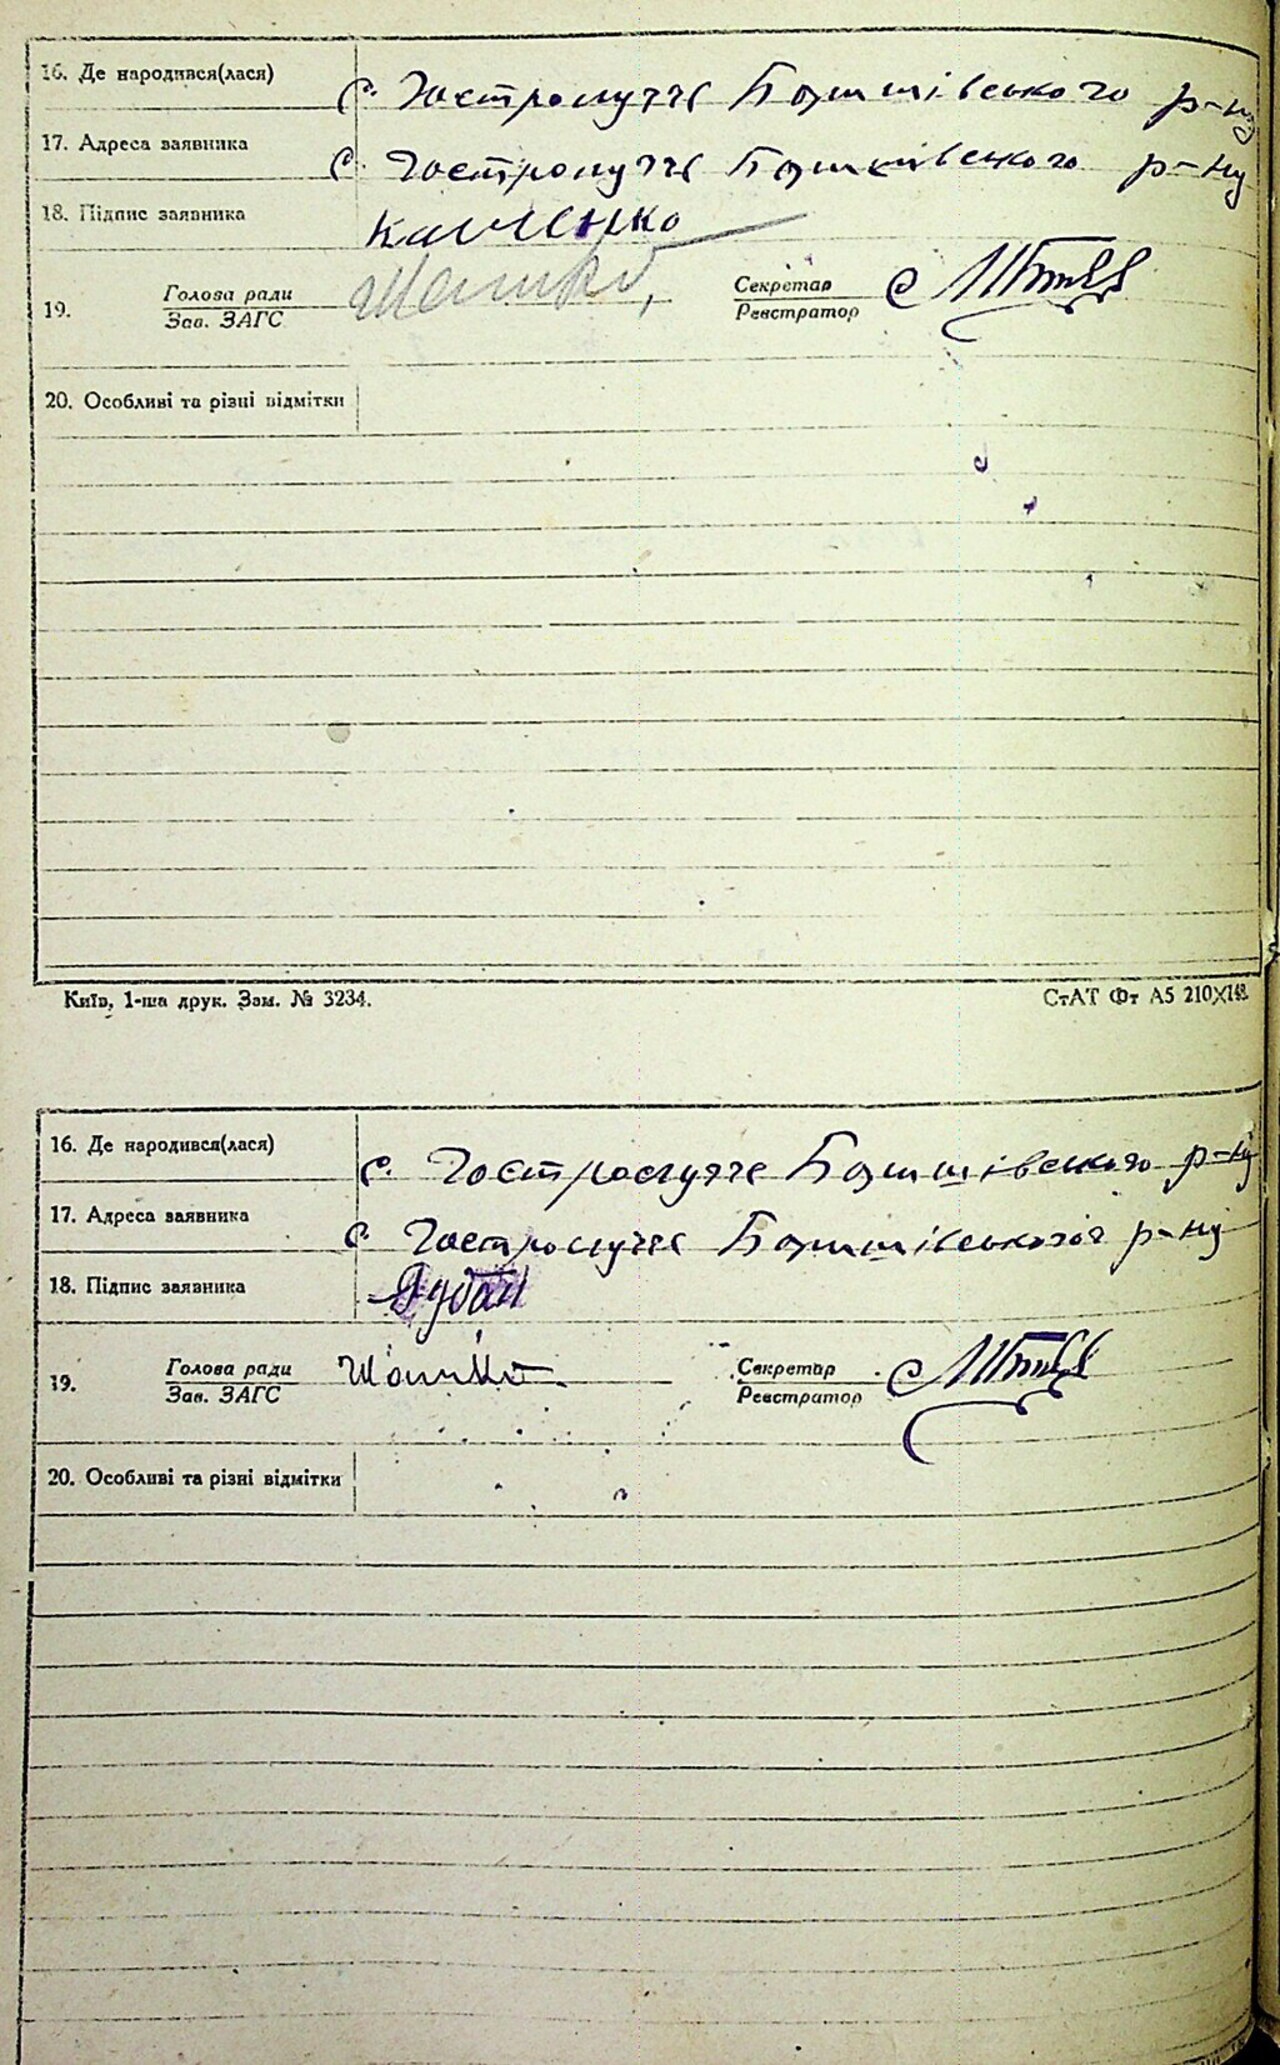 16. Де народився(лася) с. Гостролуччє Баришівського р-ну
17. Адреса заявника с. Гостролуччє Баришівського р-ну
18. Підпис заявника
19. Голова ради Секретар
Зав. ЗАГС Реєстратор
20. Особливі та різні відмітки
Київ, 1-ша друк. Зам. № 3234. СтАТ Фт А5 210×148
16. Де народився(лася) с. Гостролучче Баришівського р-ну
17. Адреса заявника с. Гостролуччє р-ну
18. Підпис заявника
19. Голова ради Секретар
Зав. ЗАГС Реєстратор
20. Особливі та різні відмітки